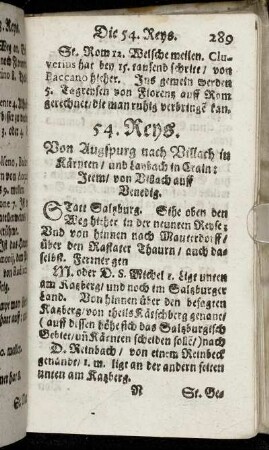 Die 54. Reys. 289
St. Rom 12. Welsche meilen. Clu-
verius hat bey 15. tausend schrite / von
Baccano hieher. Ins gemein werden
5. Tagreysen von Florentz auff Rom
gerechnet / die man ruhig verbringẽ kan.
54. Reys.
Von Augspurg nach Villach in
Kärnten / und Laybach in Crain:
Item / von Villach auff
Venedig.
STatt Saltzburg. Sihe oben den
Weg hieher in der neunten Reyse:
Und von hinnen nach Mauterdorff /
über den Rastater Thaurn / auch da-
selbst. Ferrner gen
M. oder D. S. Michel 1. ligt unten
am Katzberg / und noch im Saltzburger
Land. Von hinnen über den besagten
Katzberg / von theils Kätschberg genant /
( auff dessen höhe sich das Saltzburgisch
Gebiet / uñ Kärnten scheiden solle ) nach
D. Reinbach / von einem Reinbeck
genandt / 1. m. ligt an der andern seiten
unten am Katzberg.
N St. Ge-